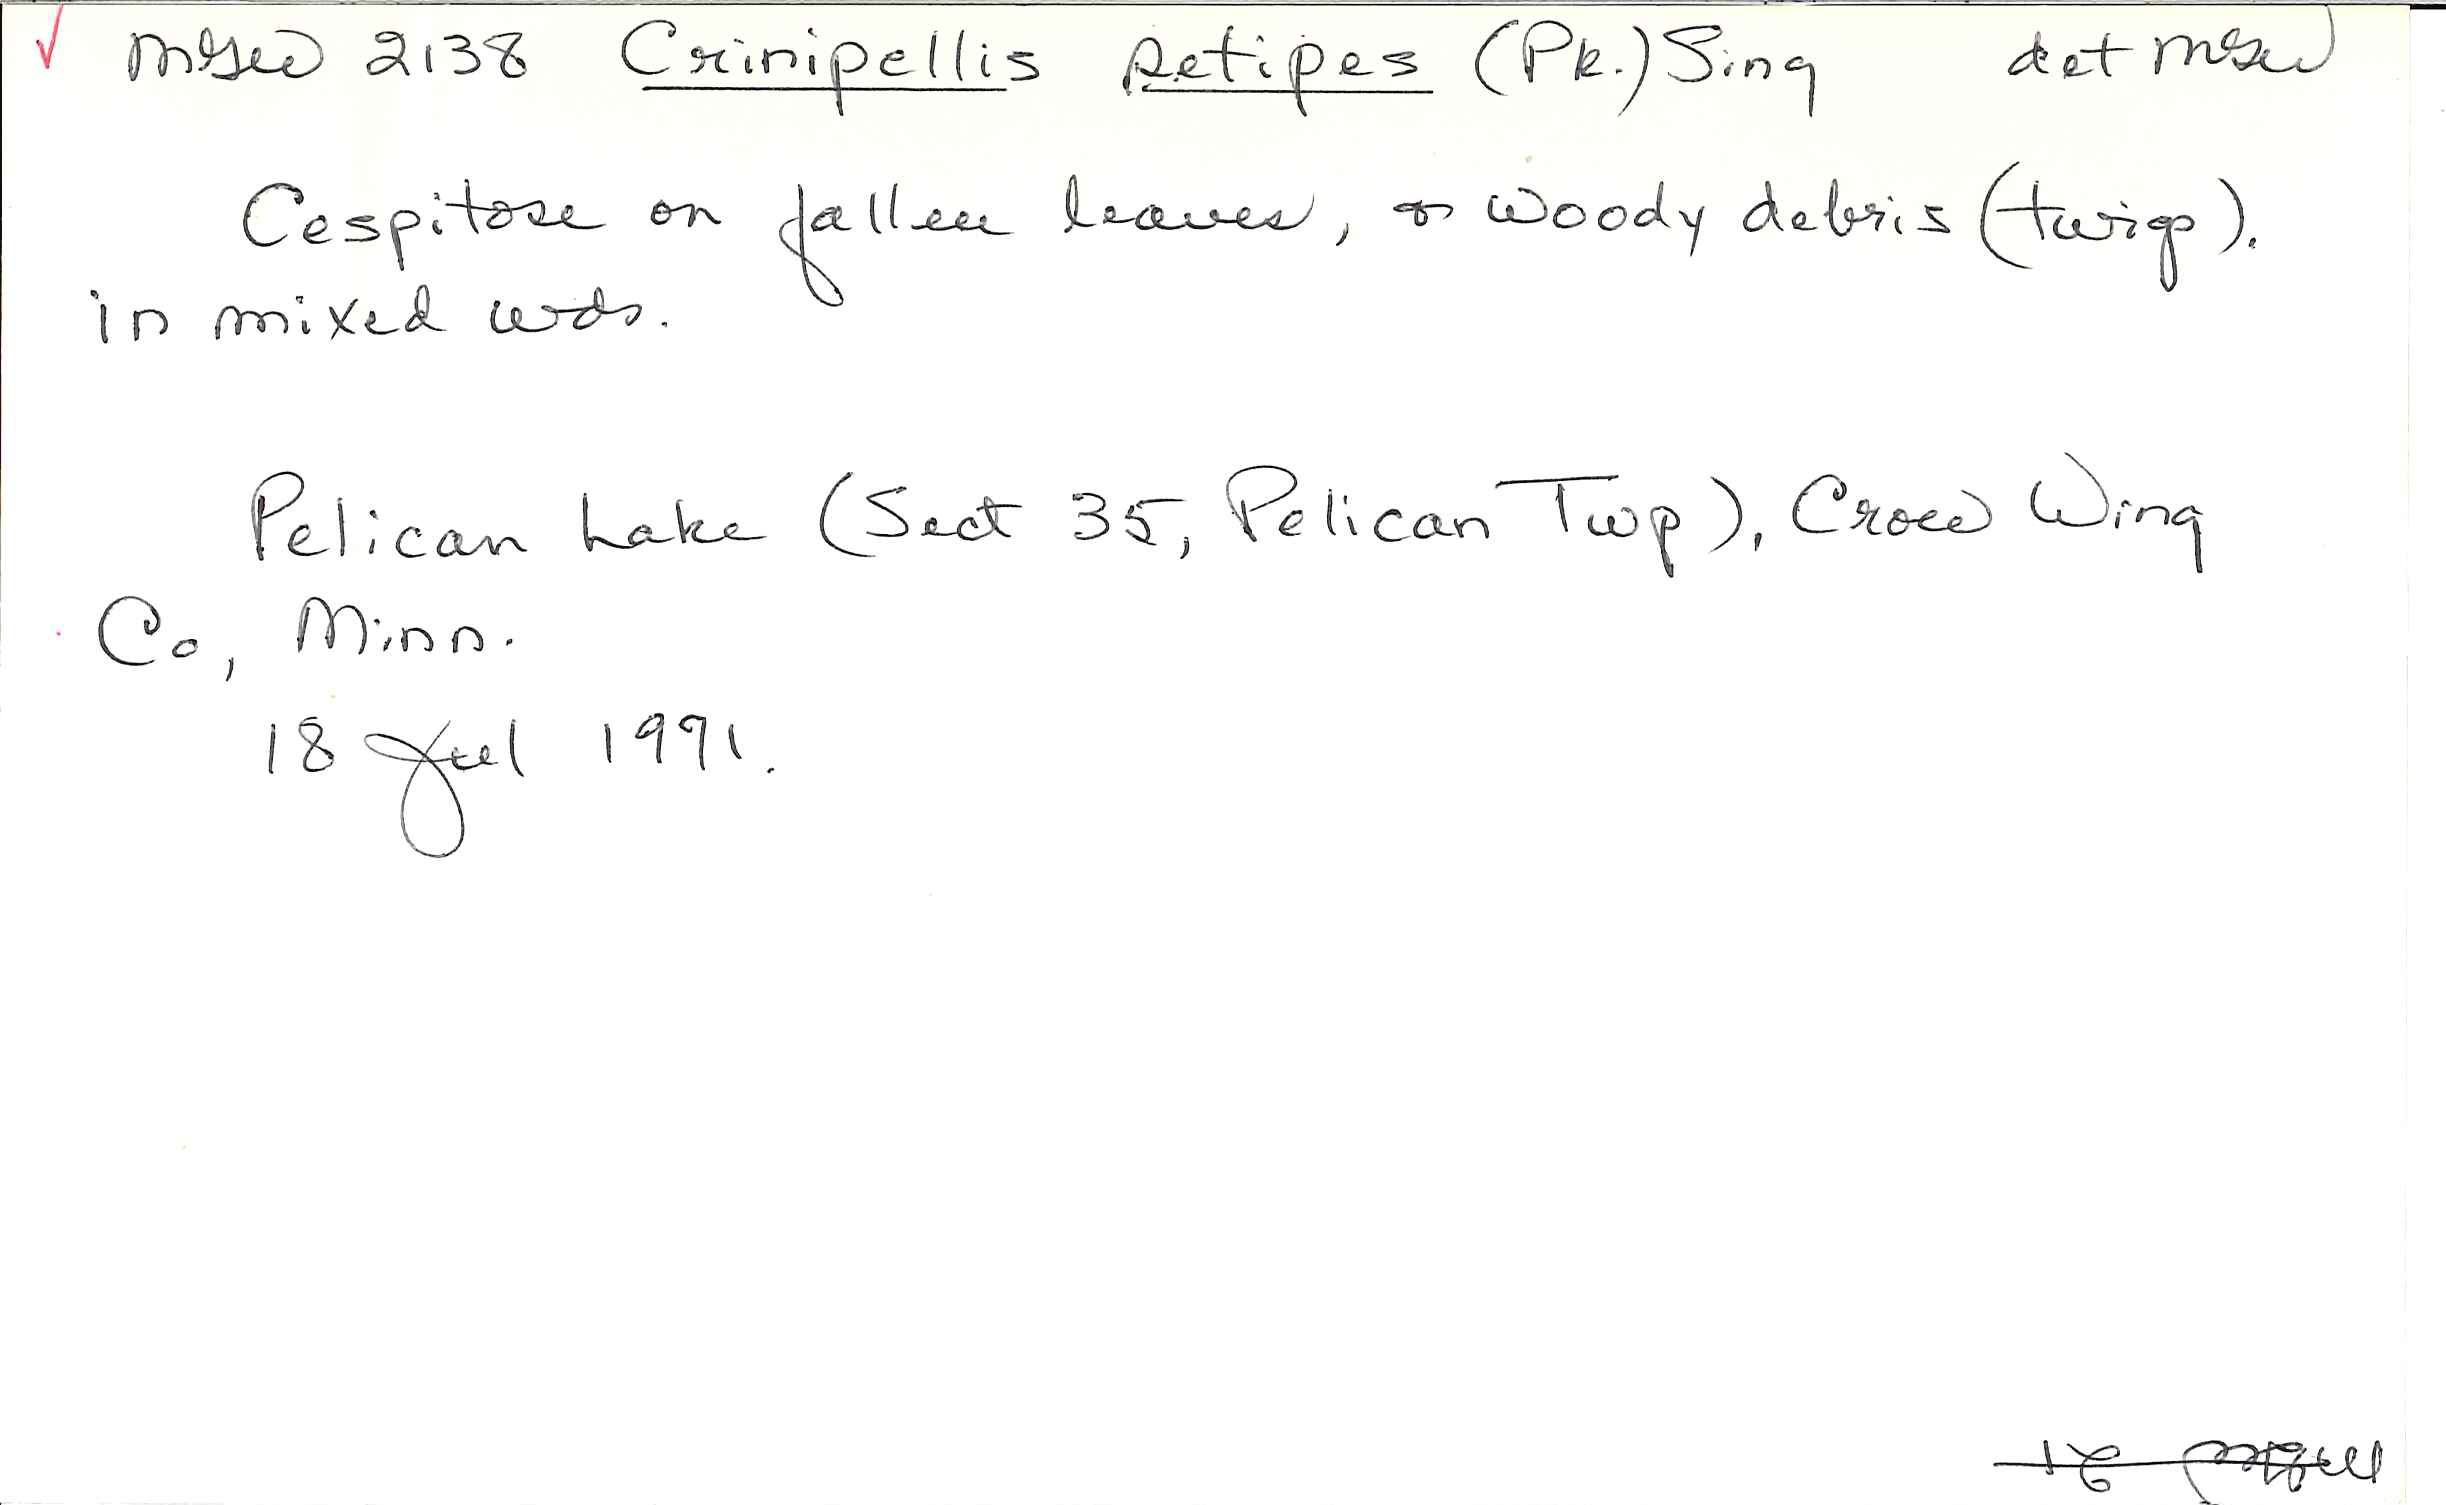 ✓ MGW 2138 Crinipellis setipes (Pk.) Sing det MGW
Cespitose on fallen leaves, or woody debris (twigs).
in mixed wds.
Pelican Lake (Sect 35, Pelican Twp), Crow Wing
Co, Minn.
18 Jul 1991.